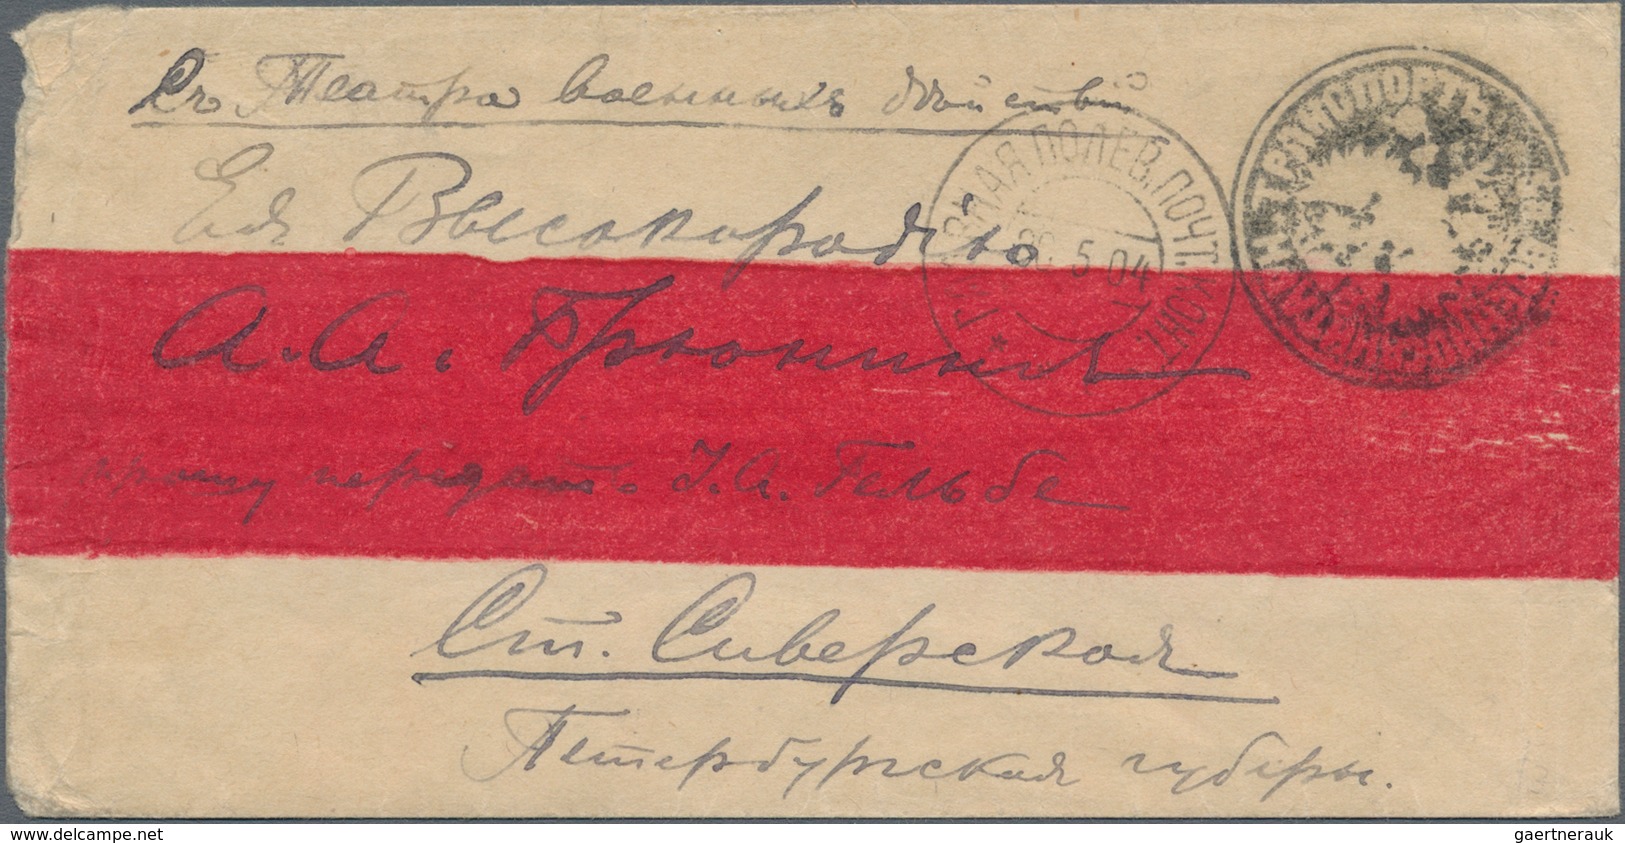 Съ Театра военныхъ действiй
Ея Высокородiю
А. А. Грюнингъ
прошу передать I. А. Гельбе
Ст. Сиверская
Петербургская губерн.
ГЛАВНАЯ ПОЛЕВ. ПОЧТ. КОНТ.
30 5 04
www.delcampe.net
gaertnerauk